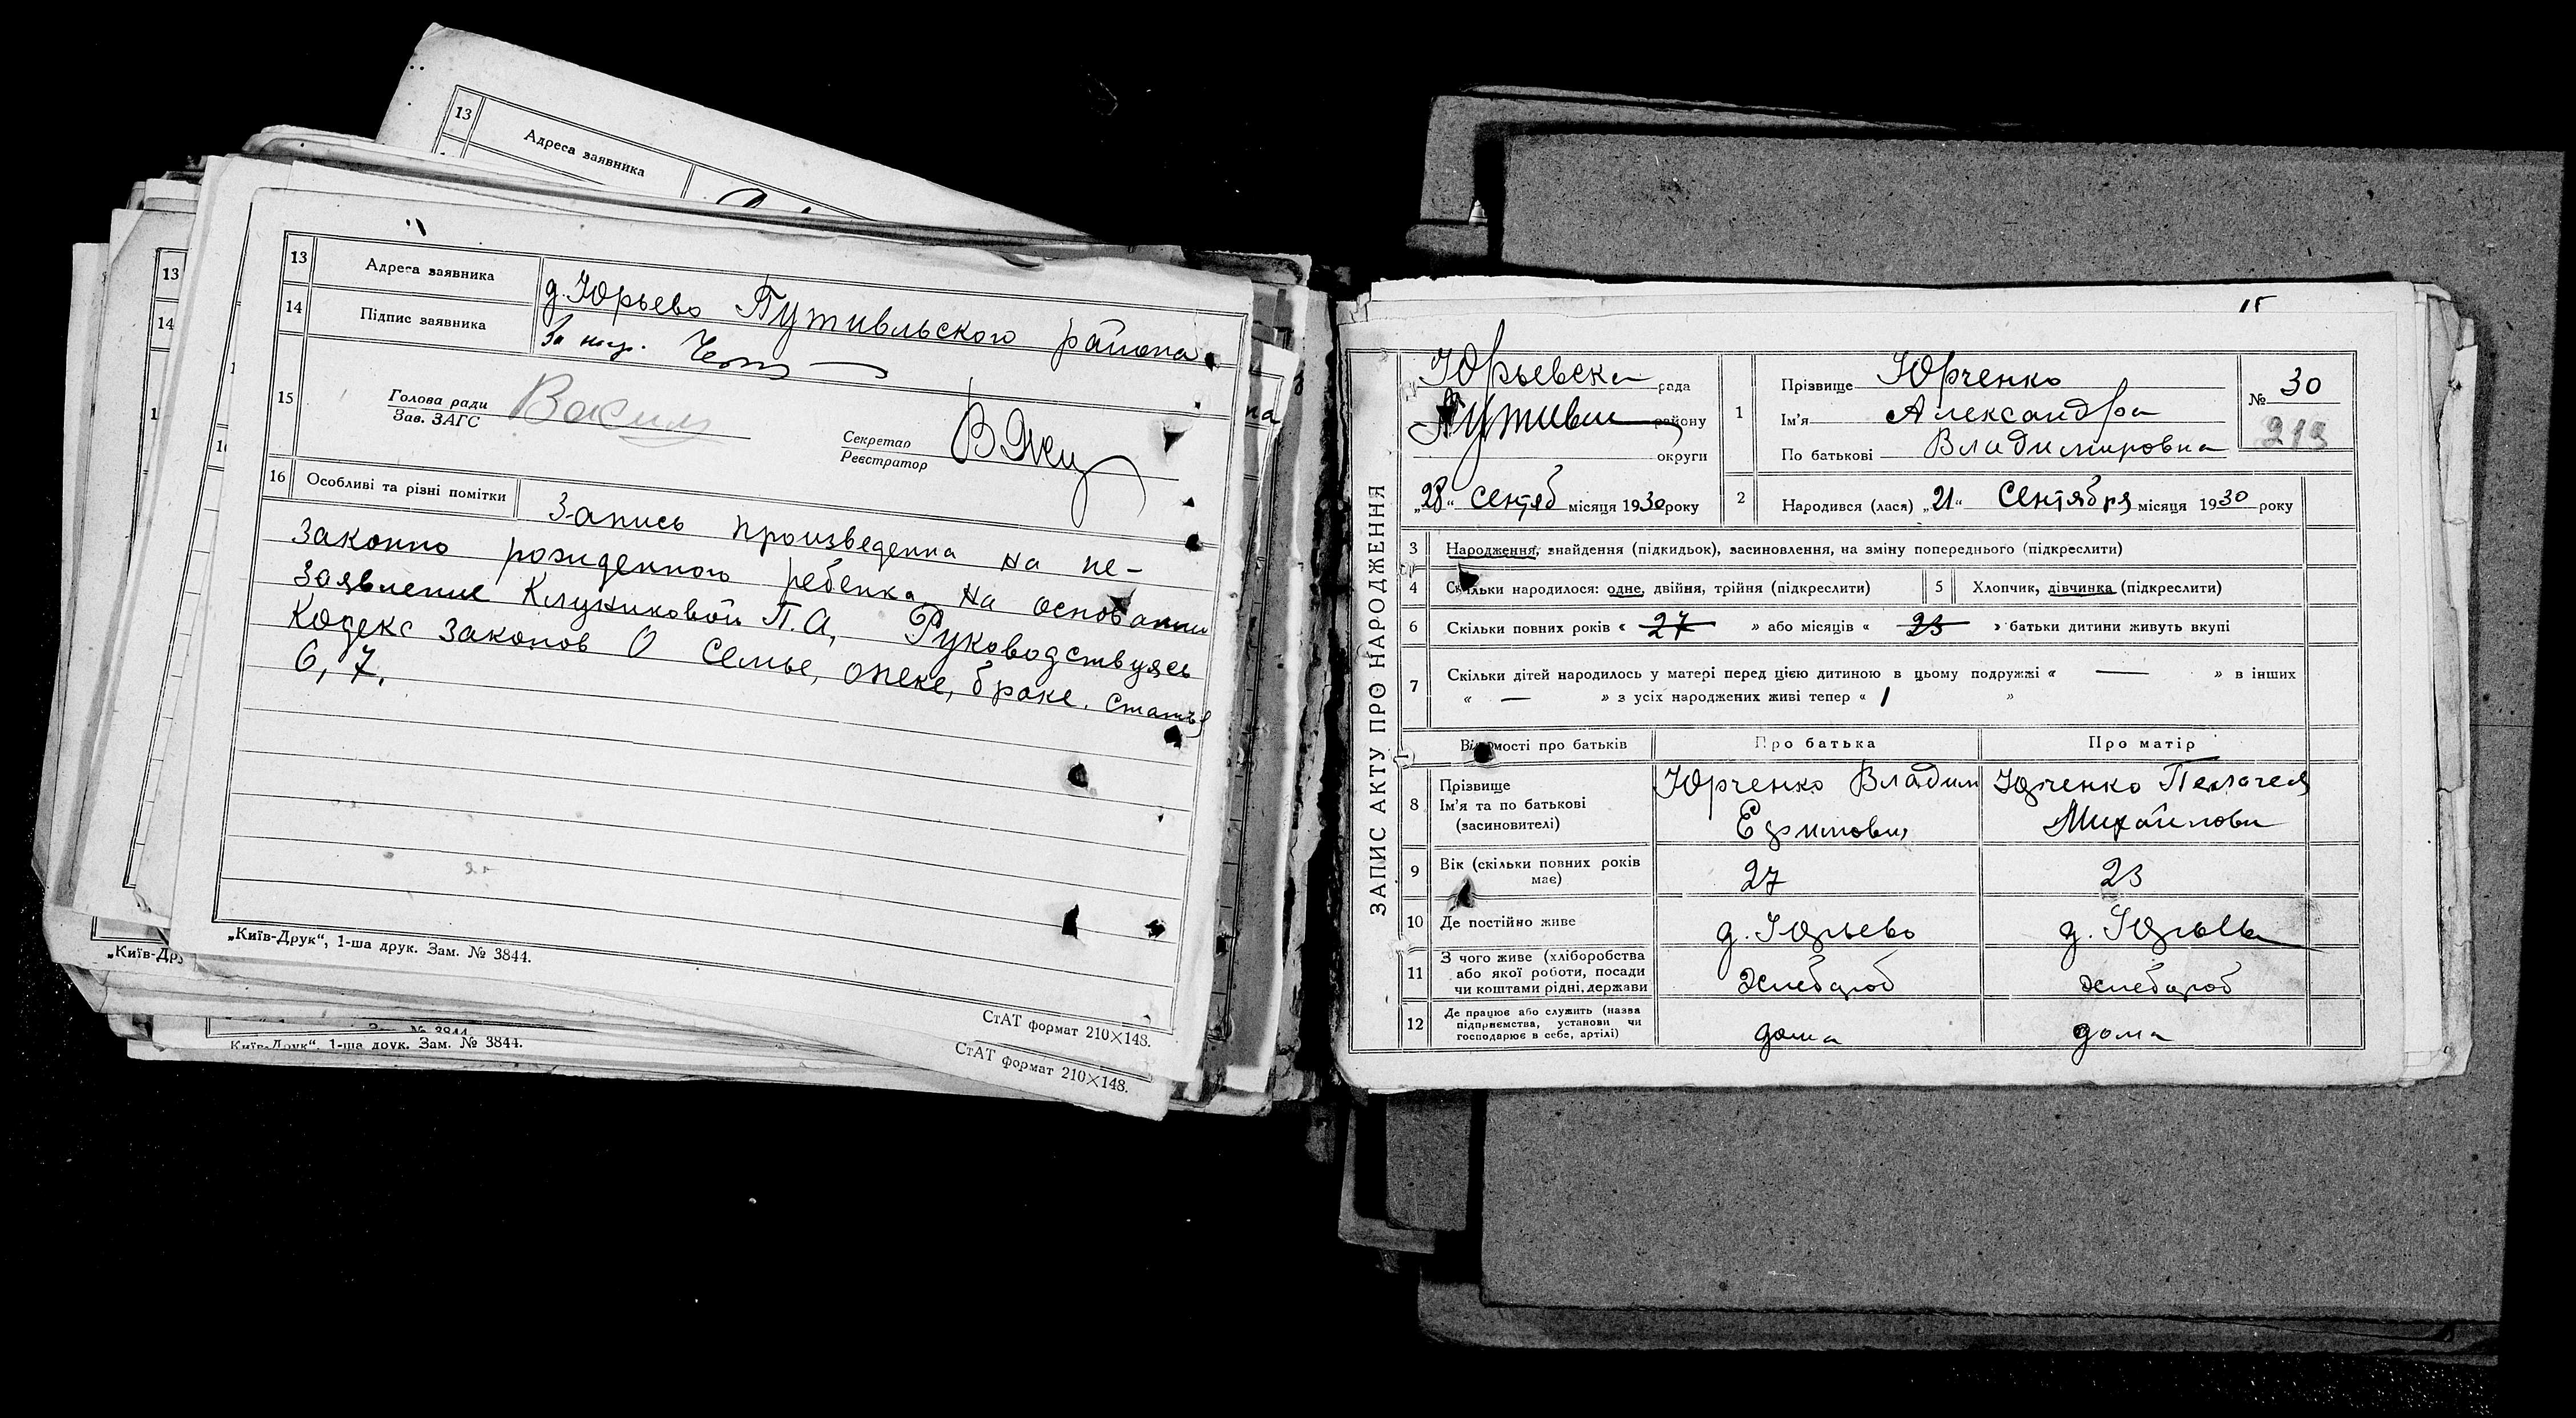 13
Адреса заявника
13 Адреса заявника д. Юрьево Путивльского района
14 Підпис заявника За негр.
15
Голова ради
Зав. ЗАГС
Секретар
Реєстратор
16 Особливі та різні помітки Запись произведенна на не-
законно рожденного ребенка на основании
заявление Клушниковой П.А, Руководствуясь
Кодекс законов О Семье, опеке, браке. Статья
6, 7.
„Київ-Друк“, 1-ша друк. Зам. № 3844.
СтАТ формат 210×148.
13
14
„Київ-Дру
Київ-Друк“, 1-ша друк. Зам. № 3844.
СтАТ формат 210×148.
15
ЗАПИС АКТУ ПРО НАРОДЖЕННЯ
Юрьевска рада
Путивл району
округи
„28“ Сентяб місяця 1930 року
1
Прізвище Юрченко
Ім'я Александра
По батькові Владимировна
№ 30
213
2 Народився (лася) „21“ Сентября місяця 1930 року
3 Народження, знайдення (підкидьок), засиновлення, на зміну попереднього (підкреслити)
4 Скільки народилося: одне, двійня, трійня (підкреслити) 5 Хлопчик, дівчинка (підкреслити)
6 Скільки повних років « 27 » або місяців « 23 » батьки дитини живуть вкупі
7 Скільки дітей народилось у матері перед цією дитиною в цьому подружжі « — » в інших
« — » з усіх народжених живі тепер « 1 »
Відомості про батьків Про батька Про матір
8 Прізвище
Ім'я та по батькові
(засиновителі)
Юрченко Владим
Ефимович
Юрченко Пелагея
Михайлови
9 Вік (скільки повних років має) 27 23
10 Де постійно живе д. Юрьево д. Юрьев
11 З чого живе (хліборобства
або якої роботи, посади
чи коштами рідні, держави
хлебороб хлебороб
12 Де працює або служить (назва
підприємства, установи чи
господарює в себе, артілі)
дома дома